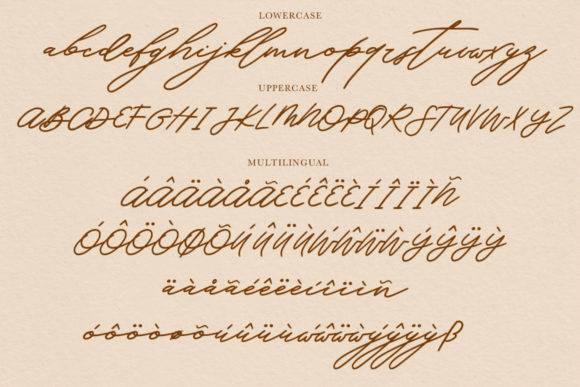 LOWERCASE
abcdefghijklmnopqrstuvwxyz
UPPERCASE
ABCDEFGHIJKLMNOPQRSTUVWXYZ
MULTILINGUAL
ÁÂÄÀÅÃÉÊËÈÍÎÏÌÑ
ÓÔÖÒØÕÚÛÜÙẂŴẄẀÝŶŸỲ
äàåãéêëèíîïìñ
óôöòøõúûüùẃŵẅẁýŷÿỳß